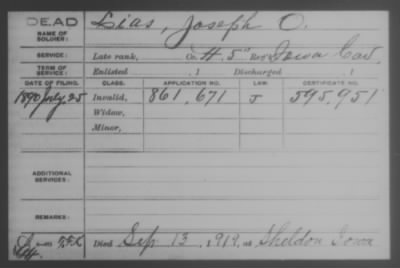 DEAD
NAME OF SOLDIER: Lias, Joseph O.
SERVICE: Late rank, Co. H. 5" Reg't Iowa Cav.
TERM OF SERVICE: Enlisted , 1 Discharged , 1
DATE OF FILING. CLASS. APPLICATION NO. LAW. CERTIFICATE NO.
1890 July 25 Invalid, 861,671 J 595,951
Widow,
Minor,
ADDITIONAL SERVICES:
REMARKS:
Died Sep 13, 1919, at Sheldon Iowa